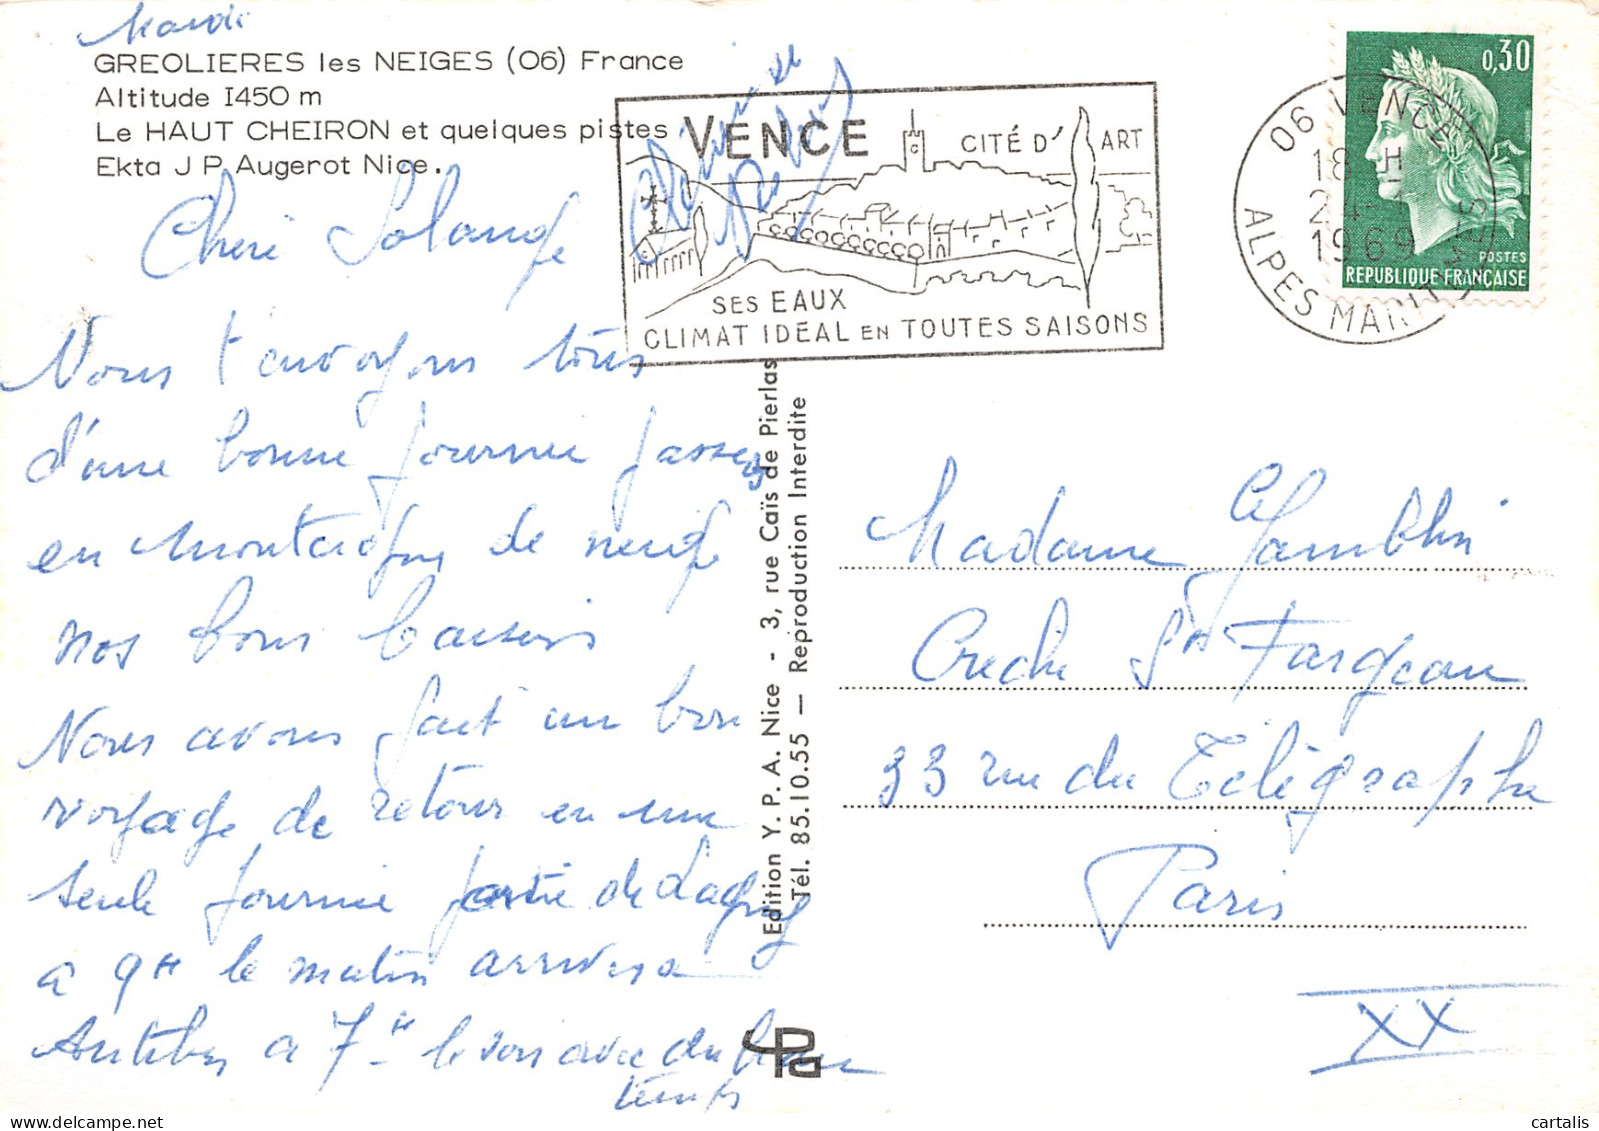 Mardi
GREOLIERES les NEIGES (06) France
Altitude 1450 m
Le HAUT CHEIRON et quelques pistes
Ekta J P Augerot Nice.
Cheri Solange
Nous t'envoyons tous
d'une bonne journée passez
en montagne de neige
nos bons baisers
Nous avons fait un bon
voyage de retour en une
seule journée partie de Lagny
a 9H le matin arrives a
Antibes a 7H le soir avec du beau
temps
VENCE
CITÉ D'ART
SES EAUX
CLIMAT IDEAL EN TOUTES SAISONS
06 VENCE
18 H
1969
ALPES MARITIMES
0,30
POSTES
REPUBLIQUE FRANÇAISE
Edition Y. P. A. Nice - 3, rue Caïs de Pierlas
Tél. 85.10.55 — Reproduction Interdite
Madame Gamblin
Creche St Fargeau
33 rue du Télégraphe
Paris
XX
cartalis